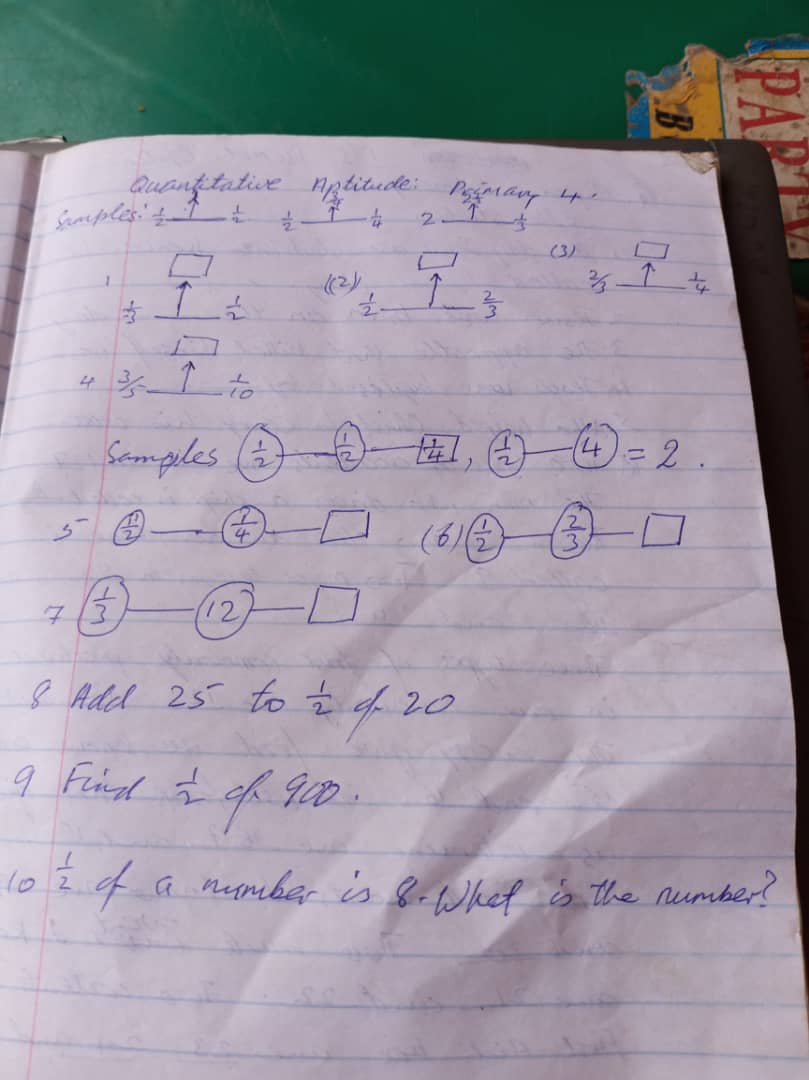 PARTY
B
Quantitative Aptitude: Primary 4.
Samples: 1/2 1/2 1/2 3/4 1/4 2 1/3
1 1/3 1/2 (2) 1/2 2/3 (3) 2/3 1/4
4 3/5 1/10
Samples 1/2 1/2 1/4, 1/2 4 = 2.
5 1/2 (6) 1/2 2/3
7 1/3 12
8 Add 25 to 1/2 of 20
9 Find 1/2 of 900.
10 1/2 of a number is 8. What is the number?